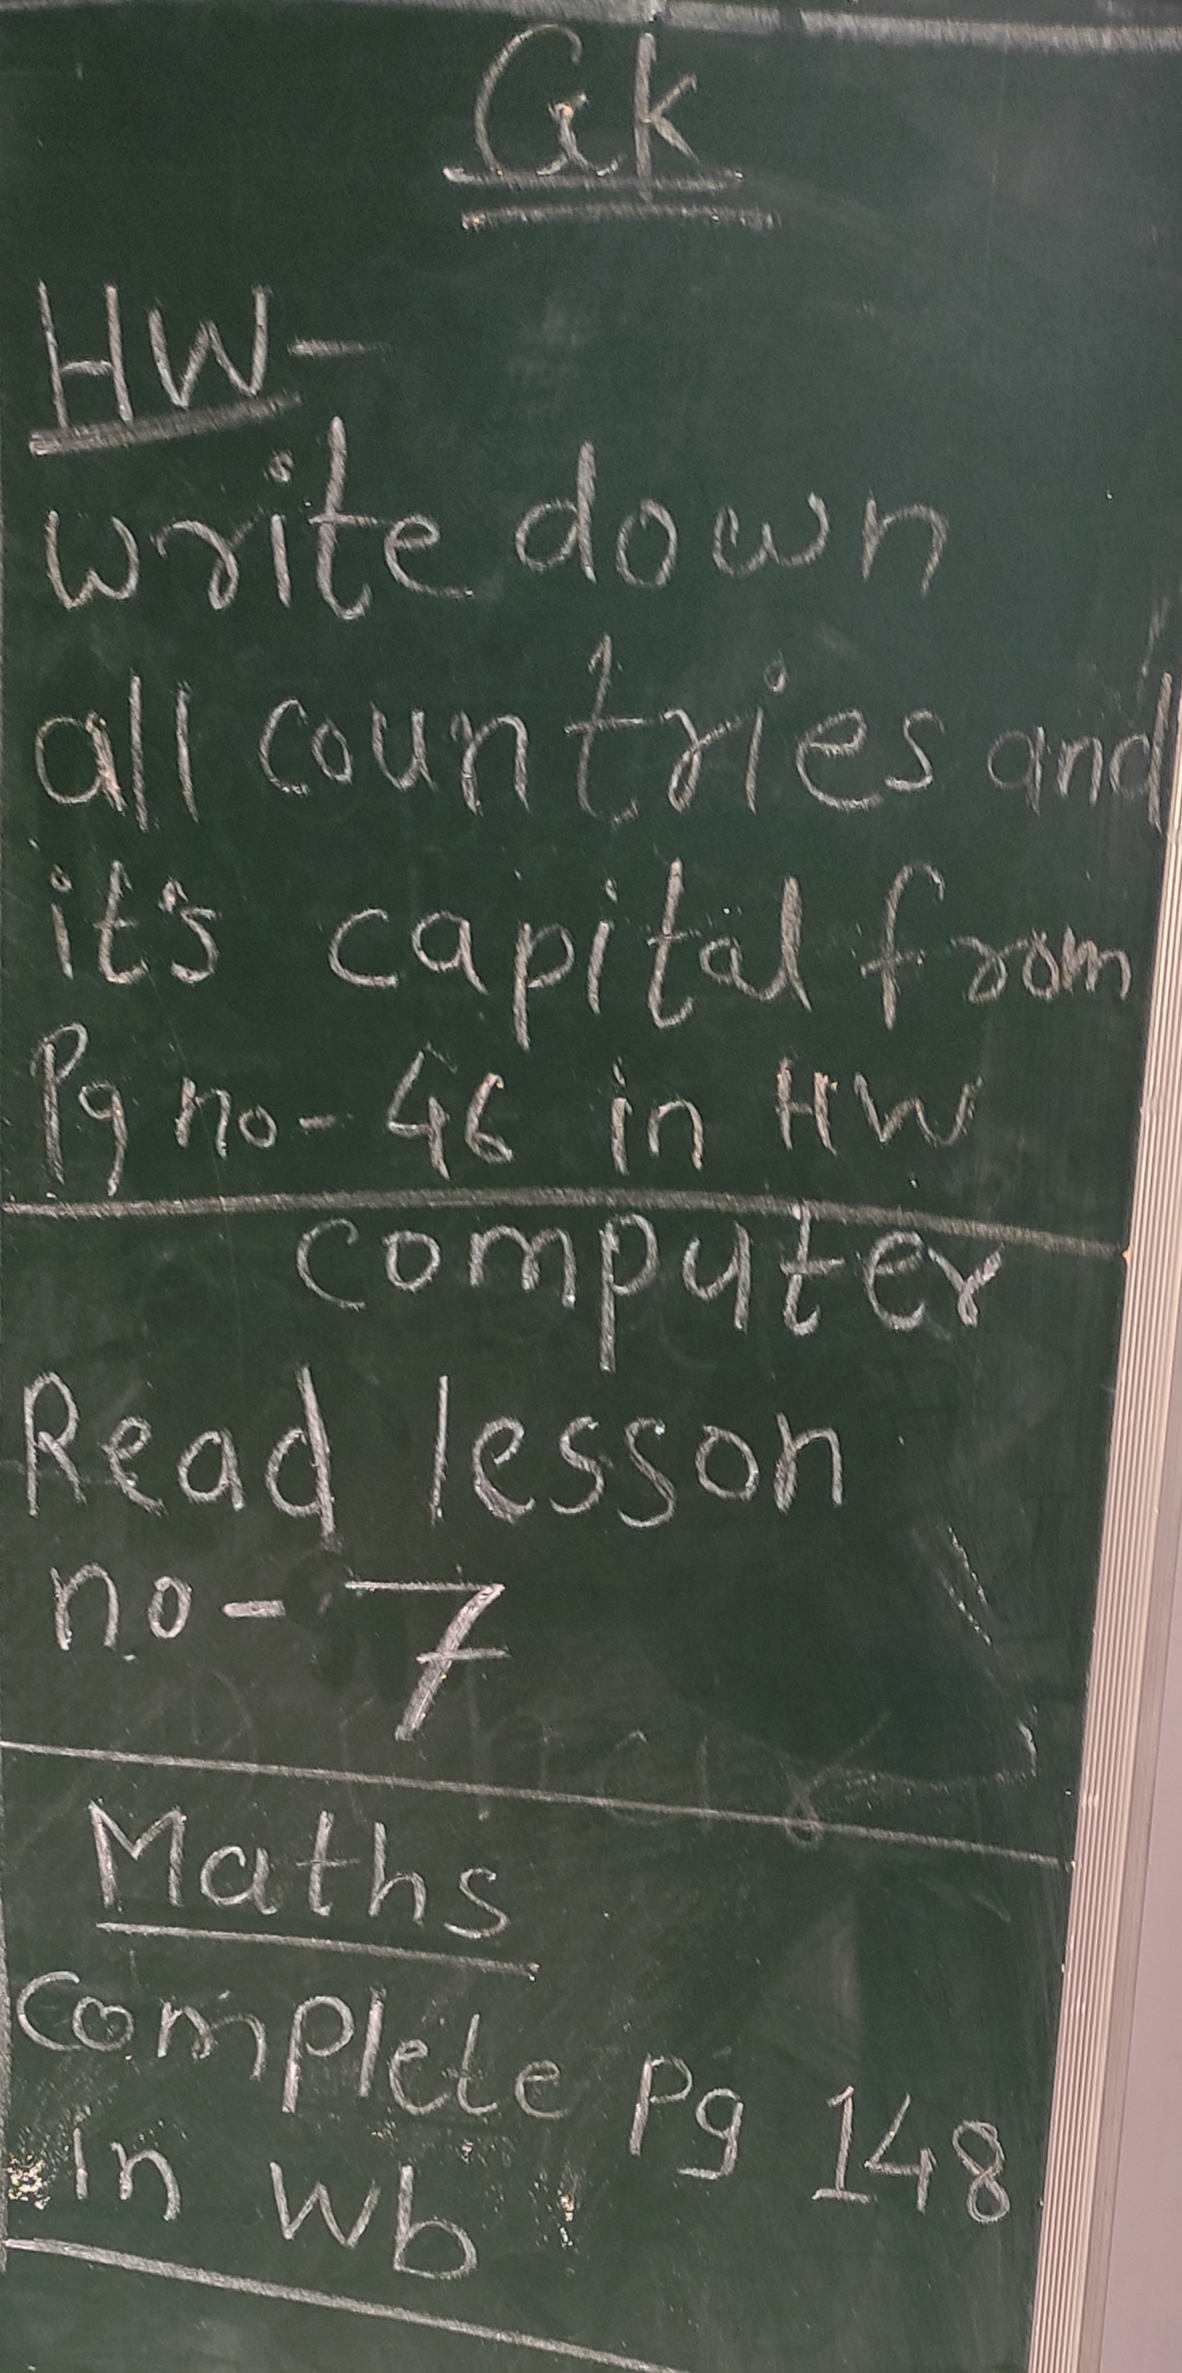 Gk
HW-
write down
all countries and
it's capital from
Pg no- 46 in HW
computer
Read lesson
no- 7
Maths
Complete Pg 148
in wb